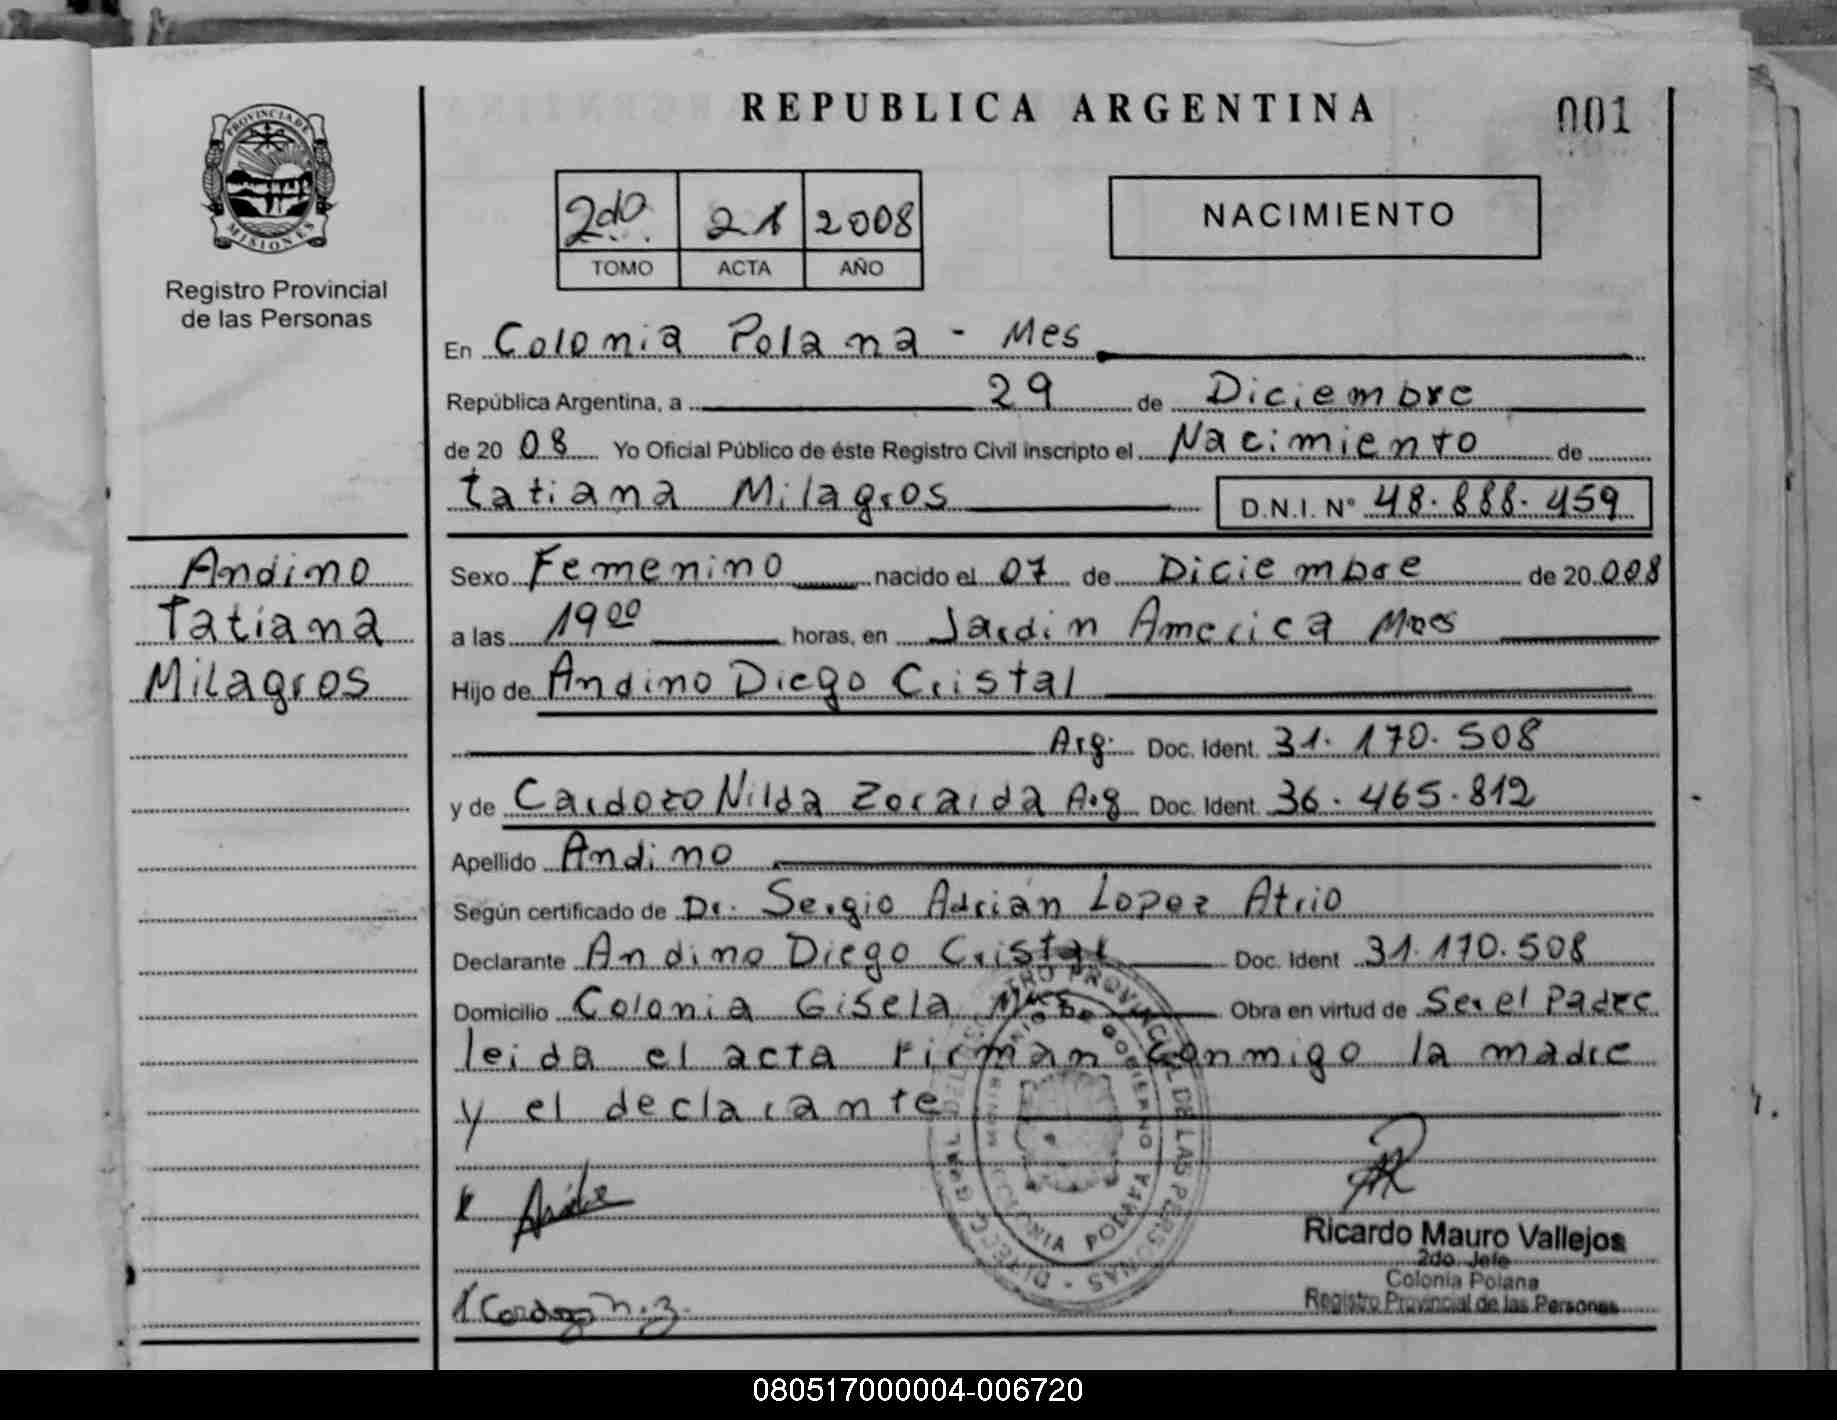 PROVINCIA DE
MISIONES
Registro Provincial
de las Personas
REPUBLICA ARGENTINA
001
2do 21 2008
TOMO ACTA AÑO
NACIMIENTO
En Colonia Polana - Mes
República Argentina, a 29 de Diciembre
de 20 08 Yo Oficial Público de éste Registro Civil inscripto el Nacimiento de
Tatiana Milagros D.N.I. N° 48.888.459
Andino
Tatiana
Milagros
Sexo Femenino nacido el 07 de Diciembre de 20 008
a las 19 00 horas, en Jardin America Mnes
Hijo de Andino Diego Cristal
Arg. Doc. Ident. 31.170.508
y de Cardozo Nilda Zoraida Arg Doc. Ident. 36.465.812
Apellido Andino
Según certificado de Dr. Sergio Adrian Lopez Atrio
Declarante Andino Diego Cristal Doc. Ident 31.170.508
Domicilio Colonia Gisela Obra en virtud de Ser el Padre
leida el acta firman conmigo la madre
y el declarante
Cardozo N.Z.
Ricardo Mauro Vallejos
2do. Jefe
Colonia Polana
Registro Provincial de las Personas
080517000004-006720